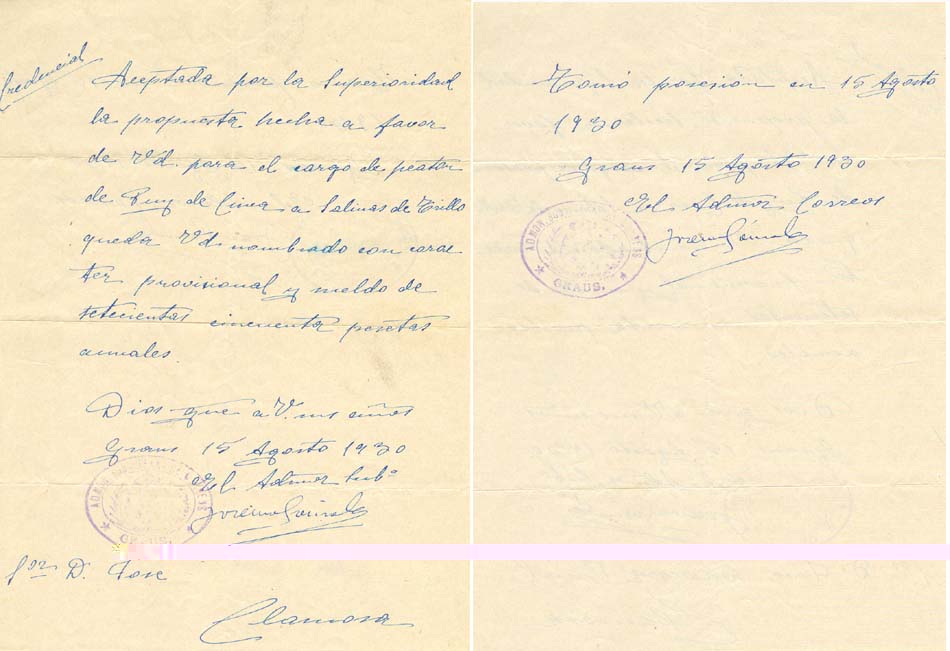 Credencial
Aceptada por la Superioridad
la propuesta hecha a favor
de Vd. para el cargo de peaton
de Puy de Cinca a Salinas de Trillo
queda Vd. nombrado con carac
ter provisional y sueldo de
setecientas cincuenta pesetas
anuales.
Dios gue a V. ms años
Graus 15 Agosto 1930
El Admor Subº
GRAUS.
Sor D. Jose
Clamosa
Tomó posesión en 15 Agosto
1930
Graus 15 Agosto 1930
El Admor Correos
GRAUS.